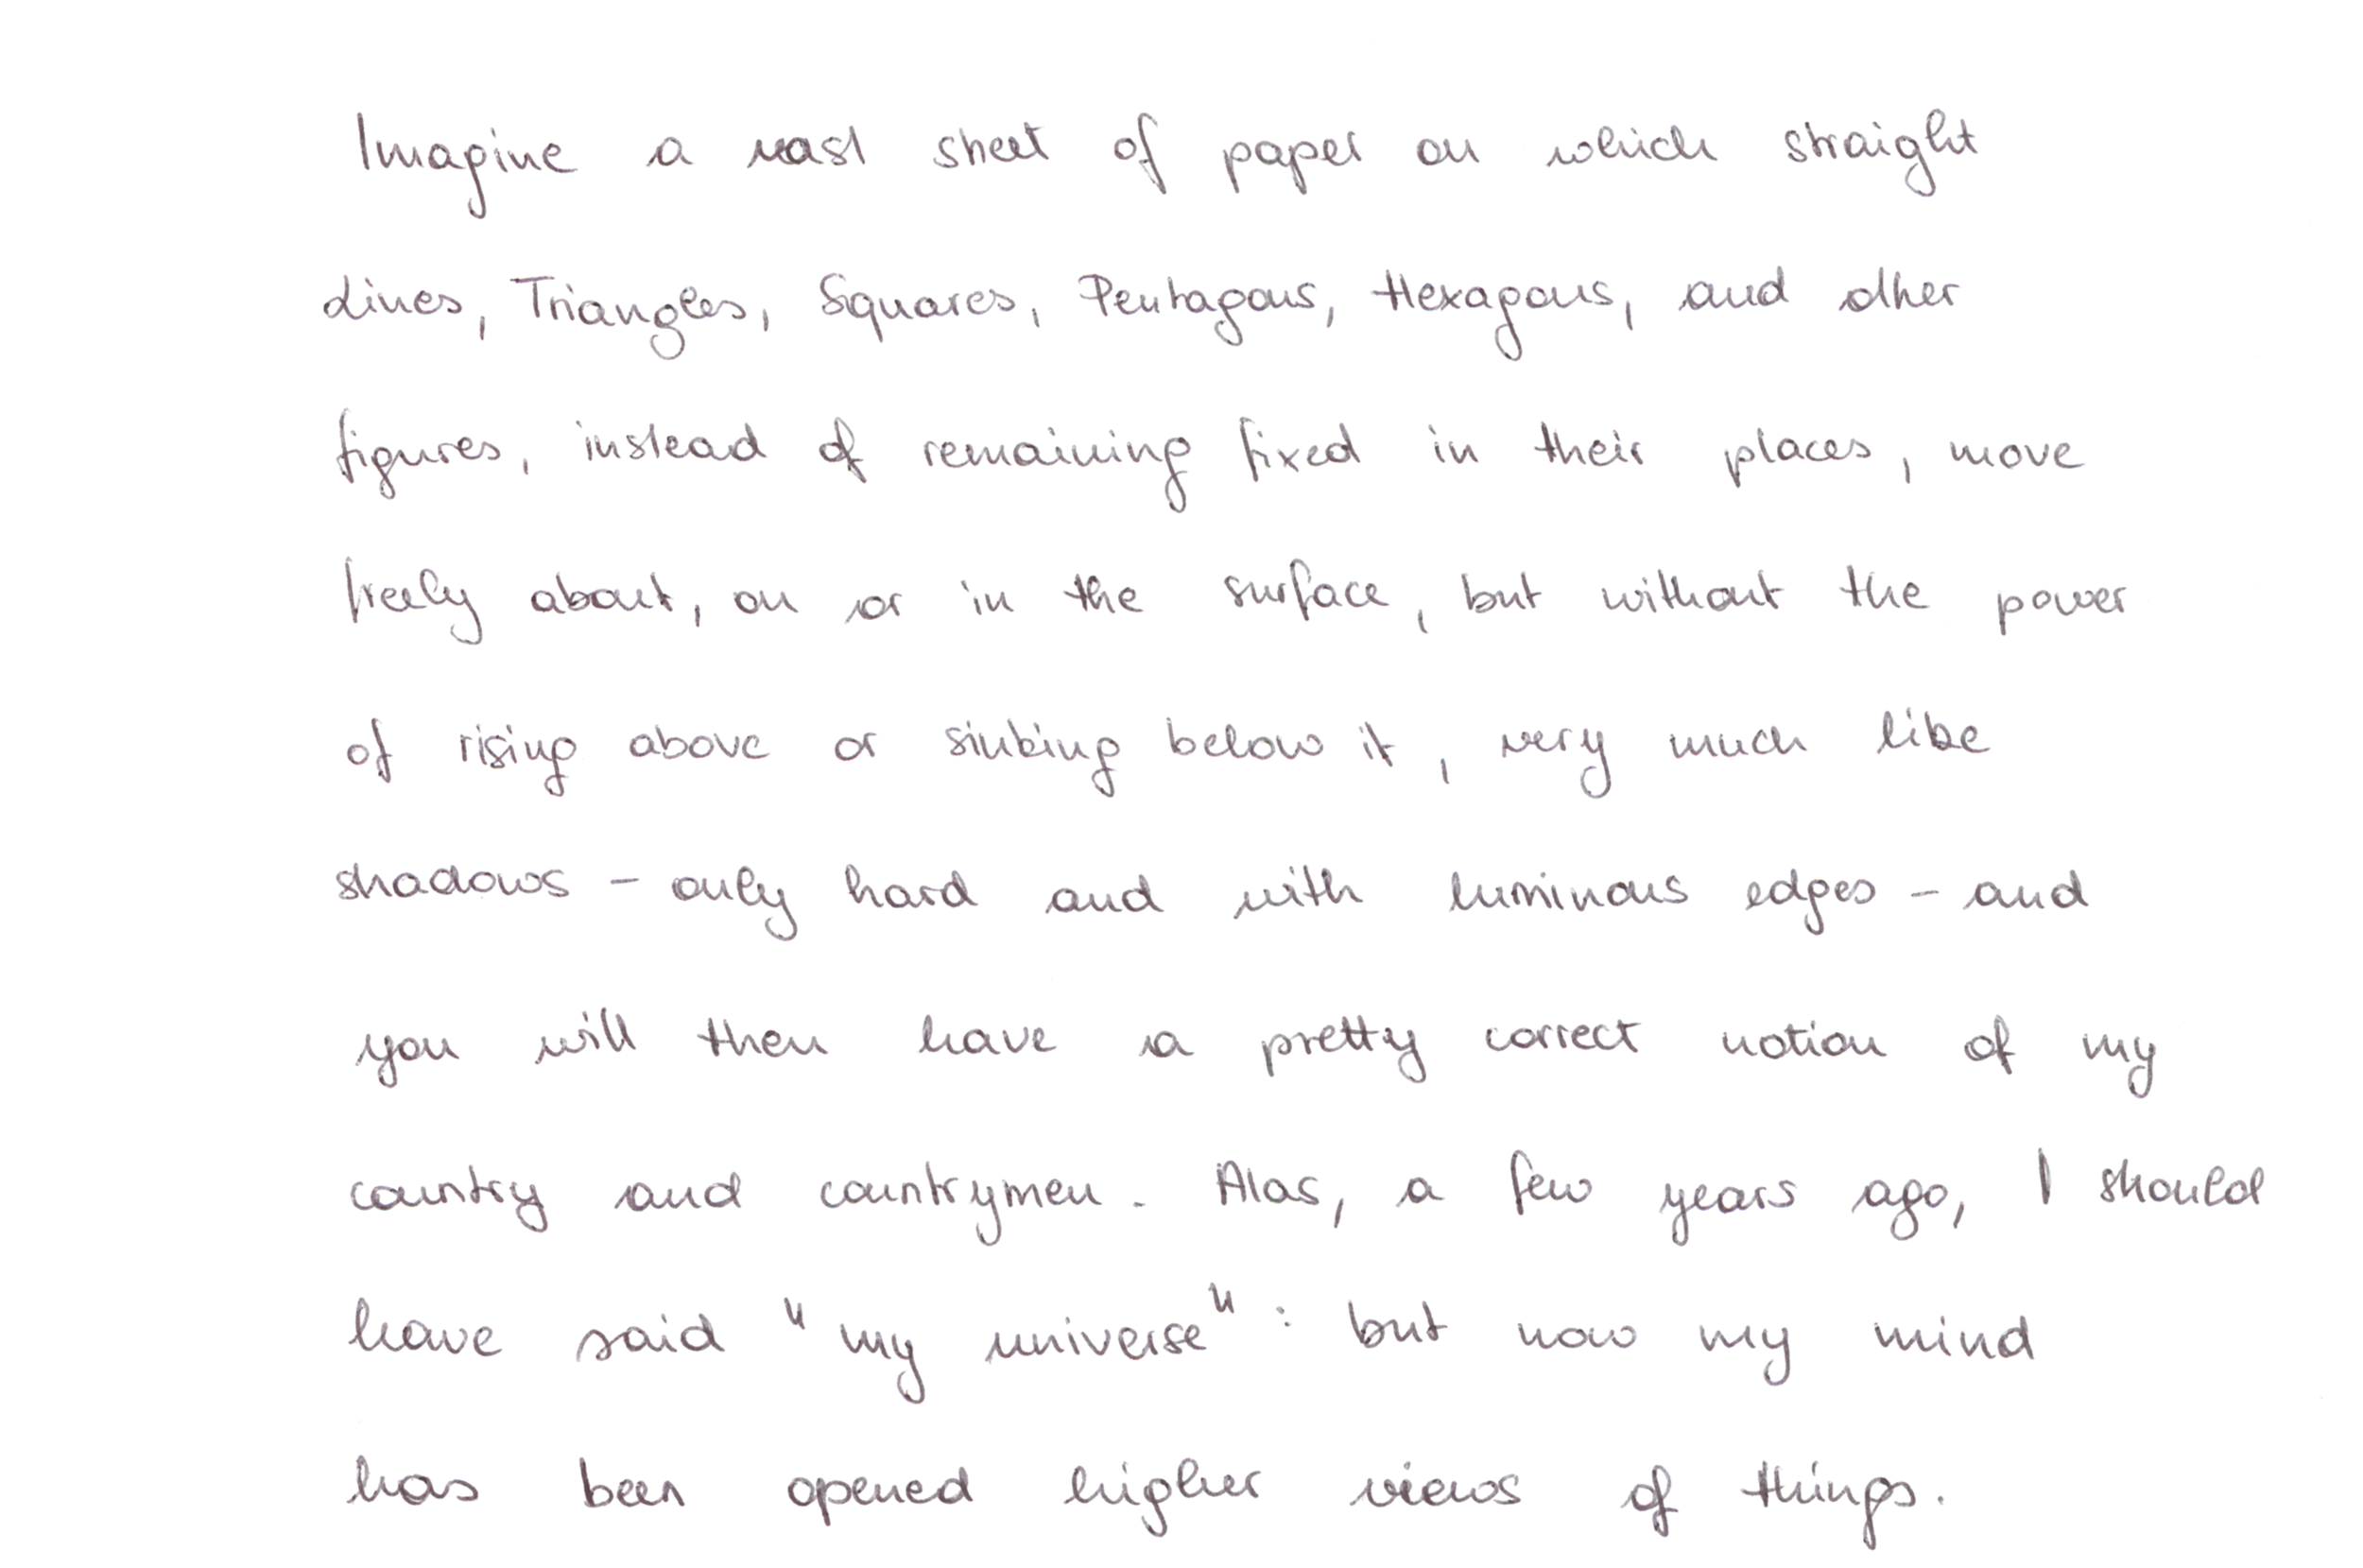 Imagine a vast sheet of paper on which straight
Lines, Triangles, Squares, Pentagons, Hexagons, and other
figures, instead of remaining fixed in their places, move
freely about, on or in the surface, but without the power
of rising above or sinking below it, very much like
shadows - only hard and with luminous edges - and
you will then have a pretty correct notion of my
country and countrymen. Alas, a few years ago, I should
have said "my universe": but now my mind
has been opened higher views of things.